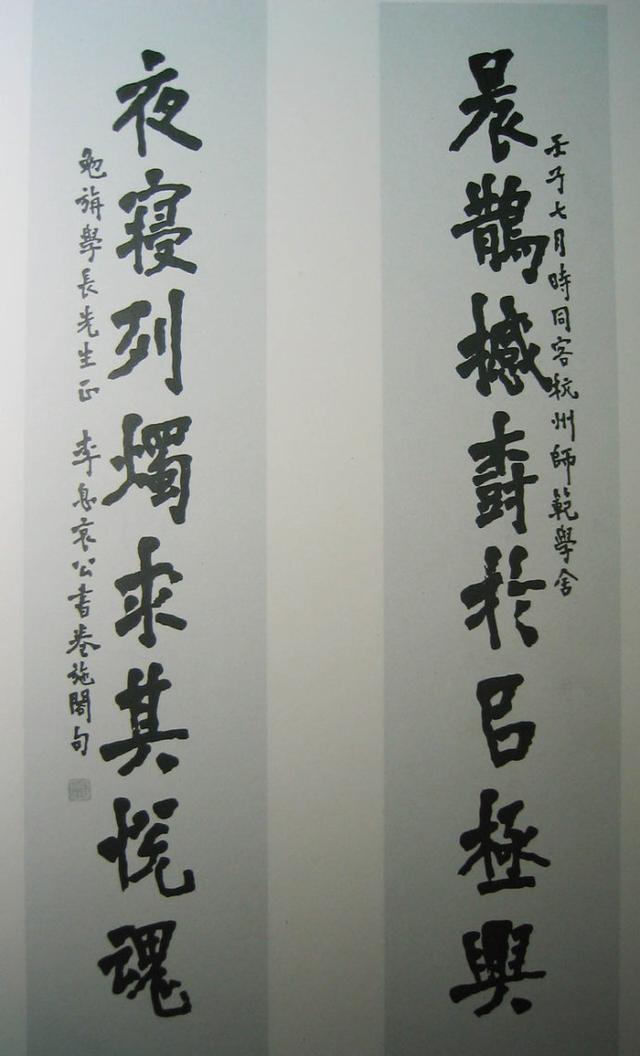 壬子七月時同客杭州師範學舍
晨鵲撼於極
夜寢列燭求其悅魂
勉旃學長先生正 李息哀公書卷施閣句